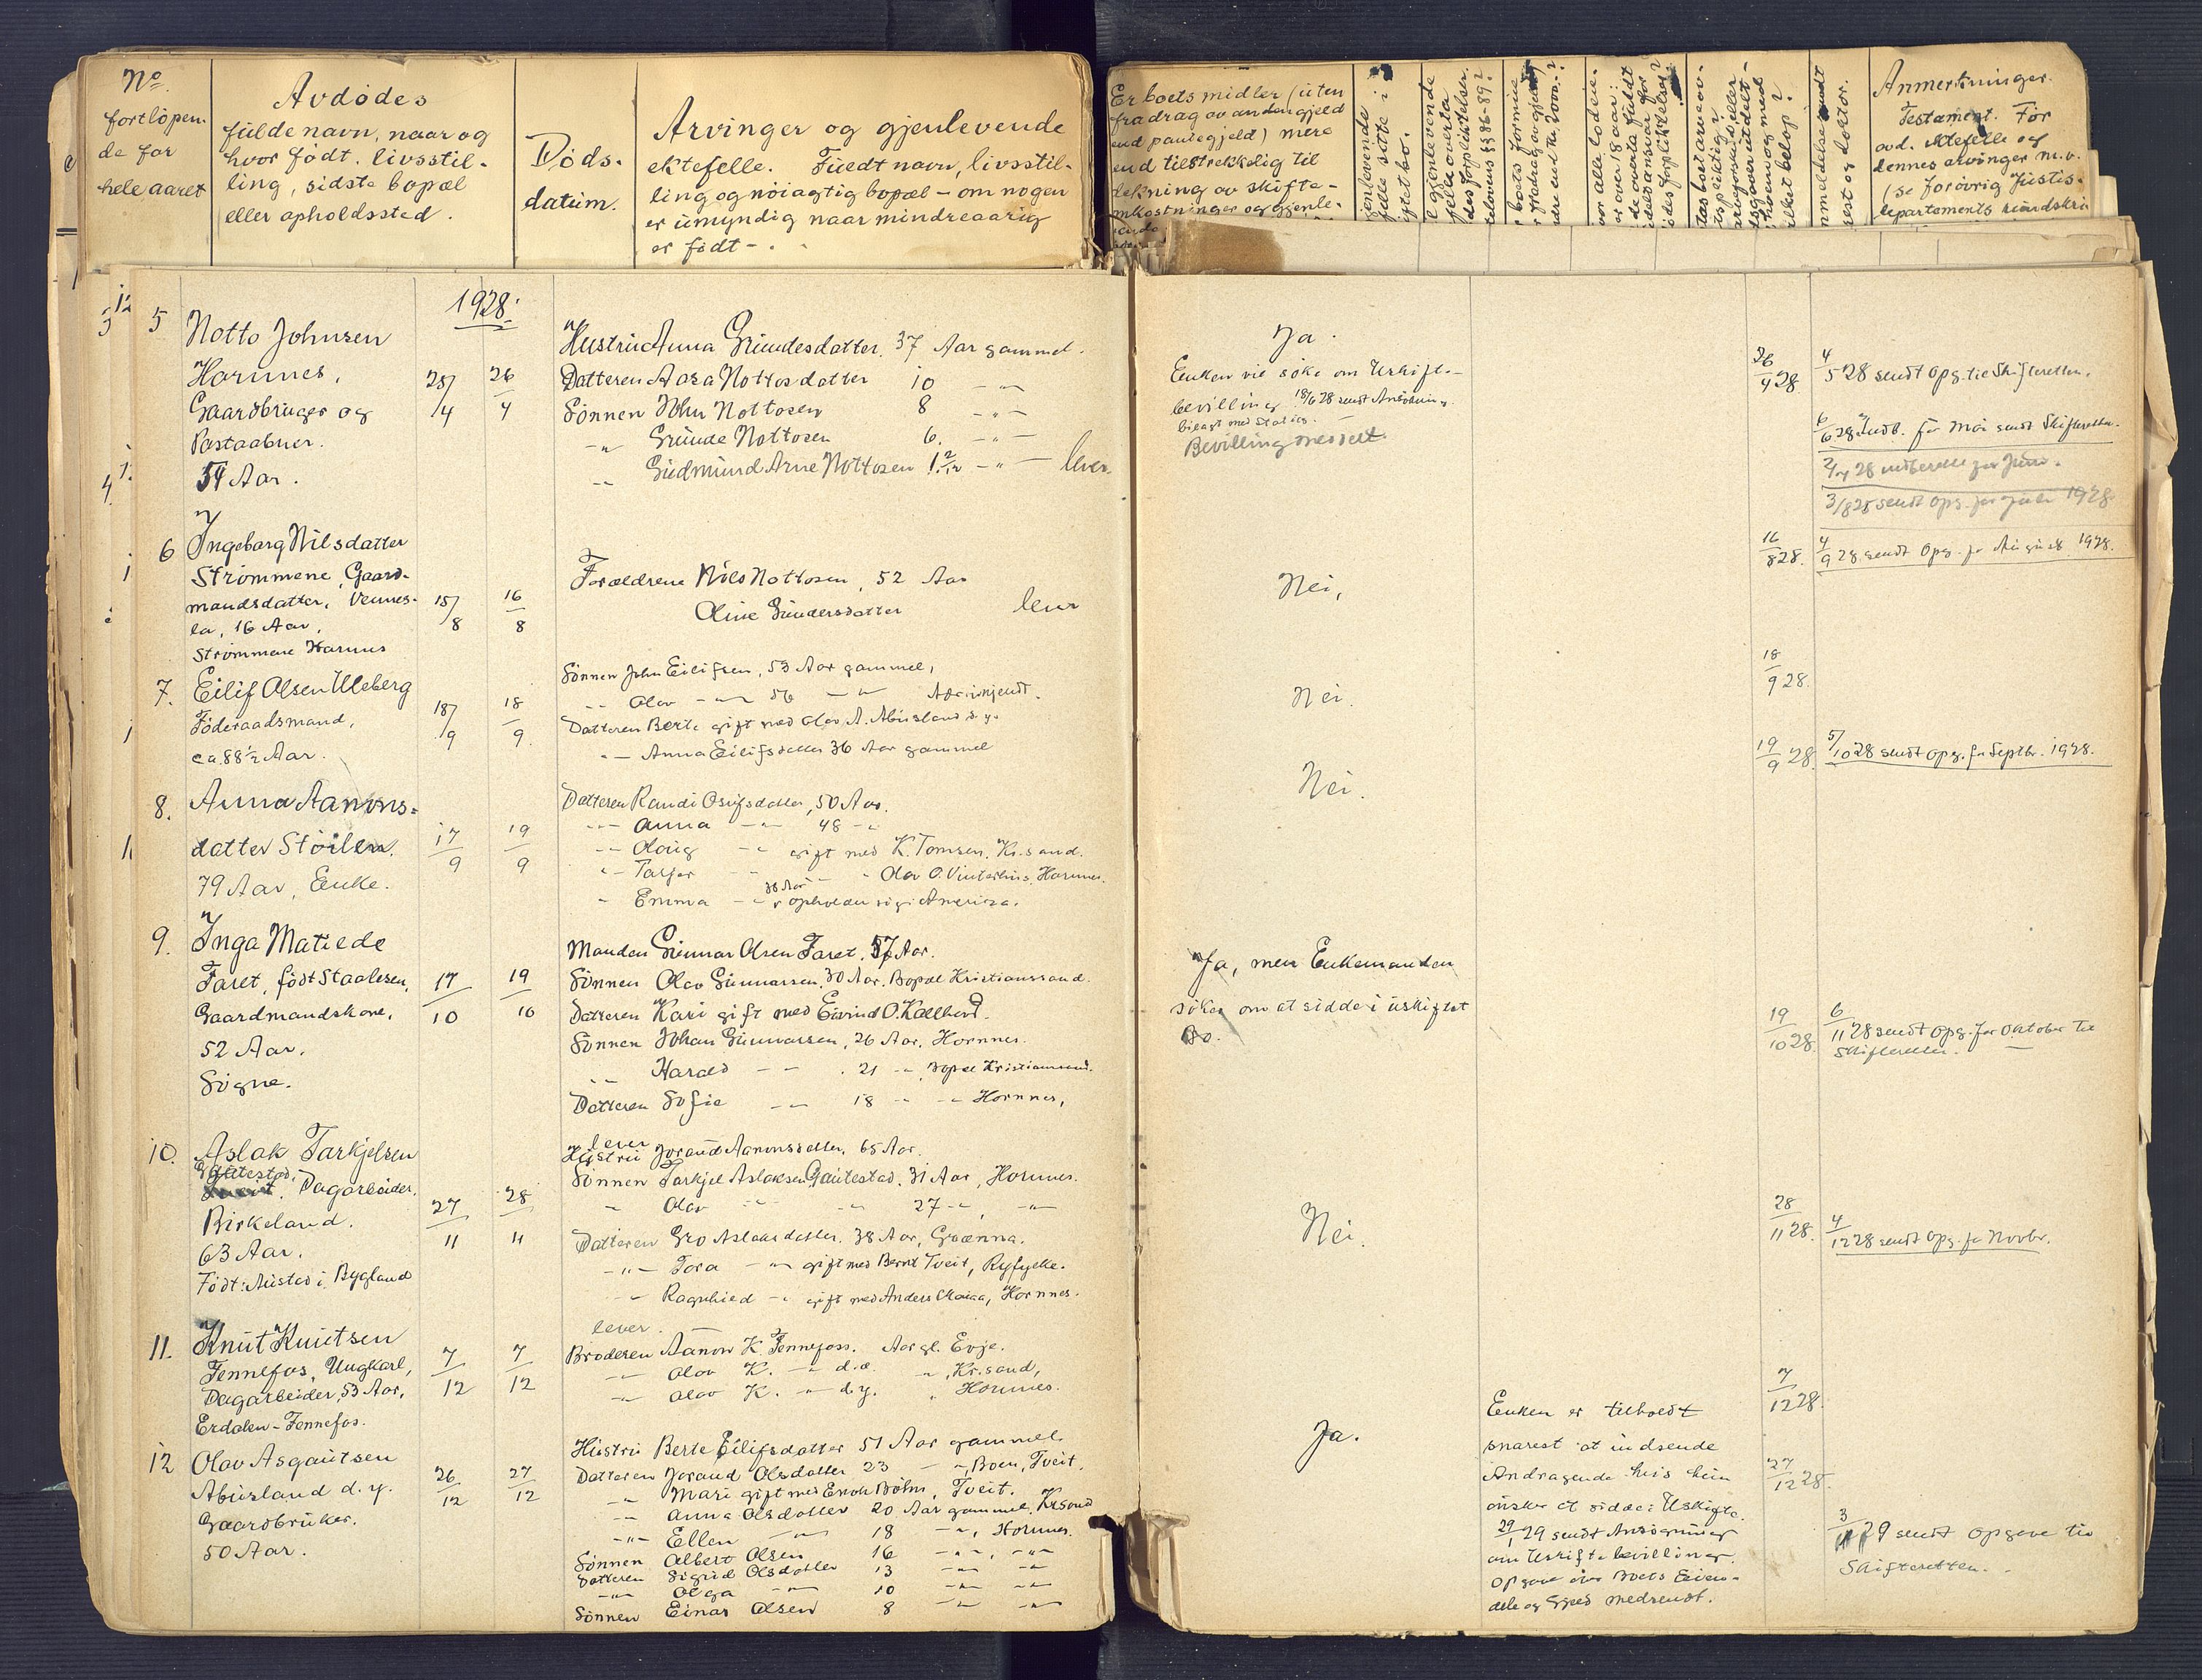 No.
fortløpen-
de for
hele aaret
Avdødes
fulde navn, naar og
hvor født. livsstil-
ling, sidste bopæl
eller opholdssted.
Døds-
datum.
Arvinger og gjenlevende
ektefelle. Fuldt navn, livsstil-
ling og nøiagtig bopæl - om nogen
er umyndig naar mindreaarig
er født -.
Er boets midler (uten
fradrag av anden gjeld
end pantegjeld) mere
end tilstrekkelig til
dekning av skifte-
omkostninger og gjenle-
Anmerkninger.
Testament. For
avd. ektefelle og
dennes arvinger m.v.
(se forøvrig Justis-
departements rundskri
1928.
5 Notto Johnsen
Hornnes,
Gaardbruger og
Postaabner.
54 Aar.
25/4 26/4
Hustru Anna Gundesdatter. 37 Aar gammel.
Datteren Aasa Nottosdatter 10 -"-
Sønnen John Nottosen 8 -"-
-"- Gunde Nottosen 6. -"-
-"- Gudmund Arne Nottosen 1 2/12 -"- lever.
Ja.
Enken vil søke om Uskifte-
bevilling 18/6 28 sendt Ansøkning
bilagt med
Bevilling meddelt.
26/4 28
4/5 28 sendt Opg. til Skifteretten.
6/6 28 Indb. for Mai sendt Skifteretten.
28 indberette for Juni.
3/8 28 sendt Opg. for Juli 1928.
6 Ingeborg Nilsdatter
Strømmene, Gaard-
mandsdatter, Vennes-
la, 16 Aar,
Strømmene Hornnes
15/8 16/8
Forældrene Nils Nottosen, 52 Aar
Oline Gundersdatter lever
Nei,
16/8 28.
4/9 28 sendt Opg. for August 1928.
7. Eilif Olsen Uleberg
Føderaadsmand,
ca. 88 1/2 Aar.
18/9 18/9
Sønnen John Eilifsen, 53 Aar gammel,
-"- Olav -"- 56 -"-
Datteren Berte gift med Olav A. Abusland d.y.
-"- Anna Eilifsdatter 36 Aar gammel
Nei.
18/9 28.
8. Anna Aanons-
datter Støilen.
79 Aar, Enke.
17/9 19/9
Datteren Randi Osufsdatter, 50 Aar.
-"- Anna -"- 48 -"-
-"- Olaug -"- gift med K. Tomsen, Kr.sand.
-"- Tarjer -"- -"- Olav O. Vinterhus, Hornnes.
-"- Emma -"- 38 Aar opholder sig i Amerika.
Nei.
19/9 28
5/10 28 sendt Opg. for Septbr. 1928.
9. Inga Matilde
Faret, født Staalesen,
Gaardmandskone,
52 Aar.
Søgne.
17/10 19/10
Manden Gunnar Olsen Faret. 57 Aar.
Sønnen Olav Gunnarsen, 30 Aar, Bopæl Kristianssand.
Datteren Kari gift med Eivind O. Kallhovd.
Sønnen Johan Gunnarsen, 26 Aar, Hornnes.
-"- Harald -"- 21 -"- Bopæl Kristianssand.
Datteren Sofie -"- 18 -"- -"- Hornnes,
Ja, men Enkemanden
søker om at sidde i uskiftet
Bo.
19/10 28
6/11 28 sendt Opg. for Oktober til
Skifteretten.
10. Aslak Tarkjelsen
Gautestad.
Dagarbeider,
Birkeland.
63 Aar.
Født: Austad i Bygland
27/11 28/11
lever
Hustru Jorand Aanonsdatter, 65 Aar.
Sønnen Tarkjel Aslaksen Gautestad. 31 Aar, Hornnes.
-"- Olav -"- -"- 27 -"-, -"-
Datteren Gro Aslaksdatter. 38 Aar,
-"- Tora -"- gift med Bernt Tveit, Ryfylke.
-"- Ragnhild -"- gift med Anders, Hornnes.
Nei.
28/11 28.
4/12 28 sendt Opg. for Novbr.
11. Knut Knutsen
Fennefos, Ungkarl,
Dagarbeider, 53 Aar,
Erdalen - Fennefos.
7/12 7/12
lever.
Broderen Aanon K. Fennefoss. Aar gl. Evje.
-"- Olav K. -"- d.æ. -"-, Kr.sand,
-"- Olav K. -"- d.y. -"- Hornnes.
7/12 28.
12 Olav Asgautsen
Abusland d.y.
Gaardbruker.
50 Aar.
26/12 27/12
Hustru Berte Eilifsdatter 51 Aar gammel.
Datteren Jorand Olsdatter 23 -"-, Boen, Tveit.
-"- Mari gift med Enok Bøhn, Tveit.
-"- Anna Olsdatter 20 Aar gammel, Kr.sand
-"- Ellen -"- 18 -"-, Hornnes.
Sønnen Albert Olsen 16 -"-, -"-
Datteren Sigrid Olsdatter 13 -"- -"-
-"- Olga -"- 10 -"- -"-
Sønnen Einar Olsen 8 -"- -"-
Ja.
Enken er tilholdt
snarest at indsende
Andragende hvis hun
ønsker at sidde i Uskifte.
29/1 29 sendt Ansøgning
om Uskiftebevilling.
Opgave over Boets Eien-
dele og Gjeld medsendt.
27/12 28.
3/1 29 sendt Opgave til
Skifteretten.